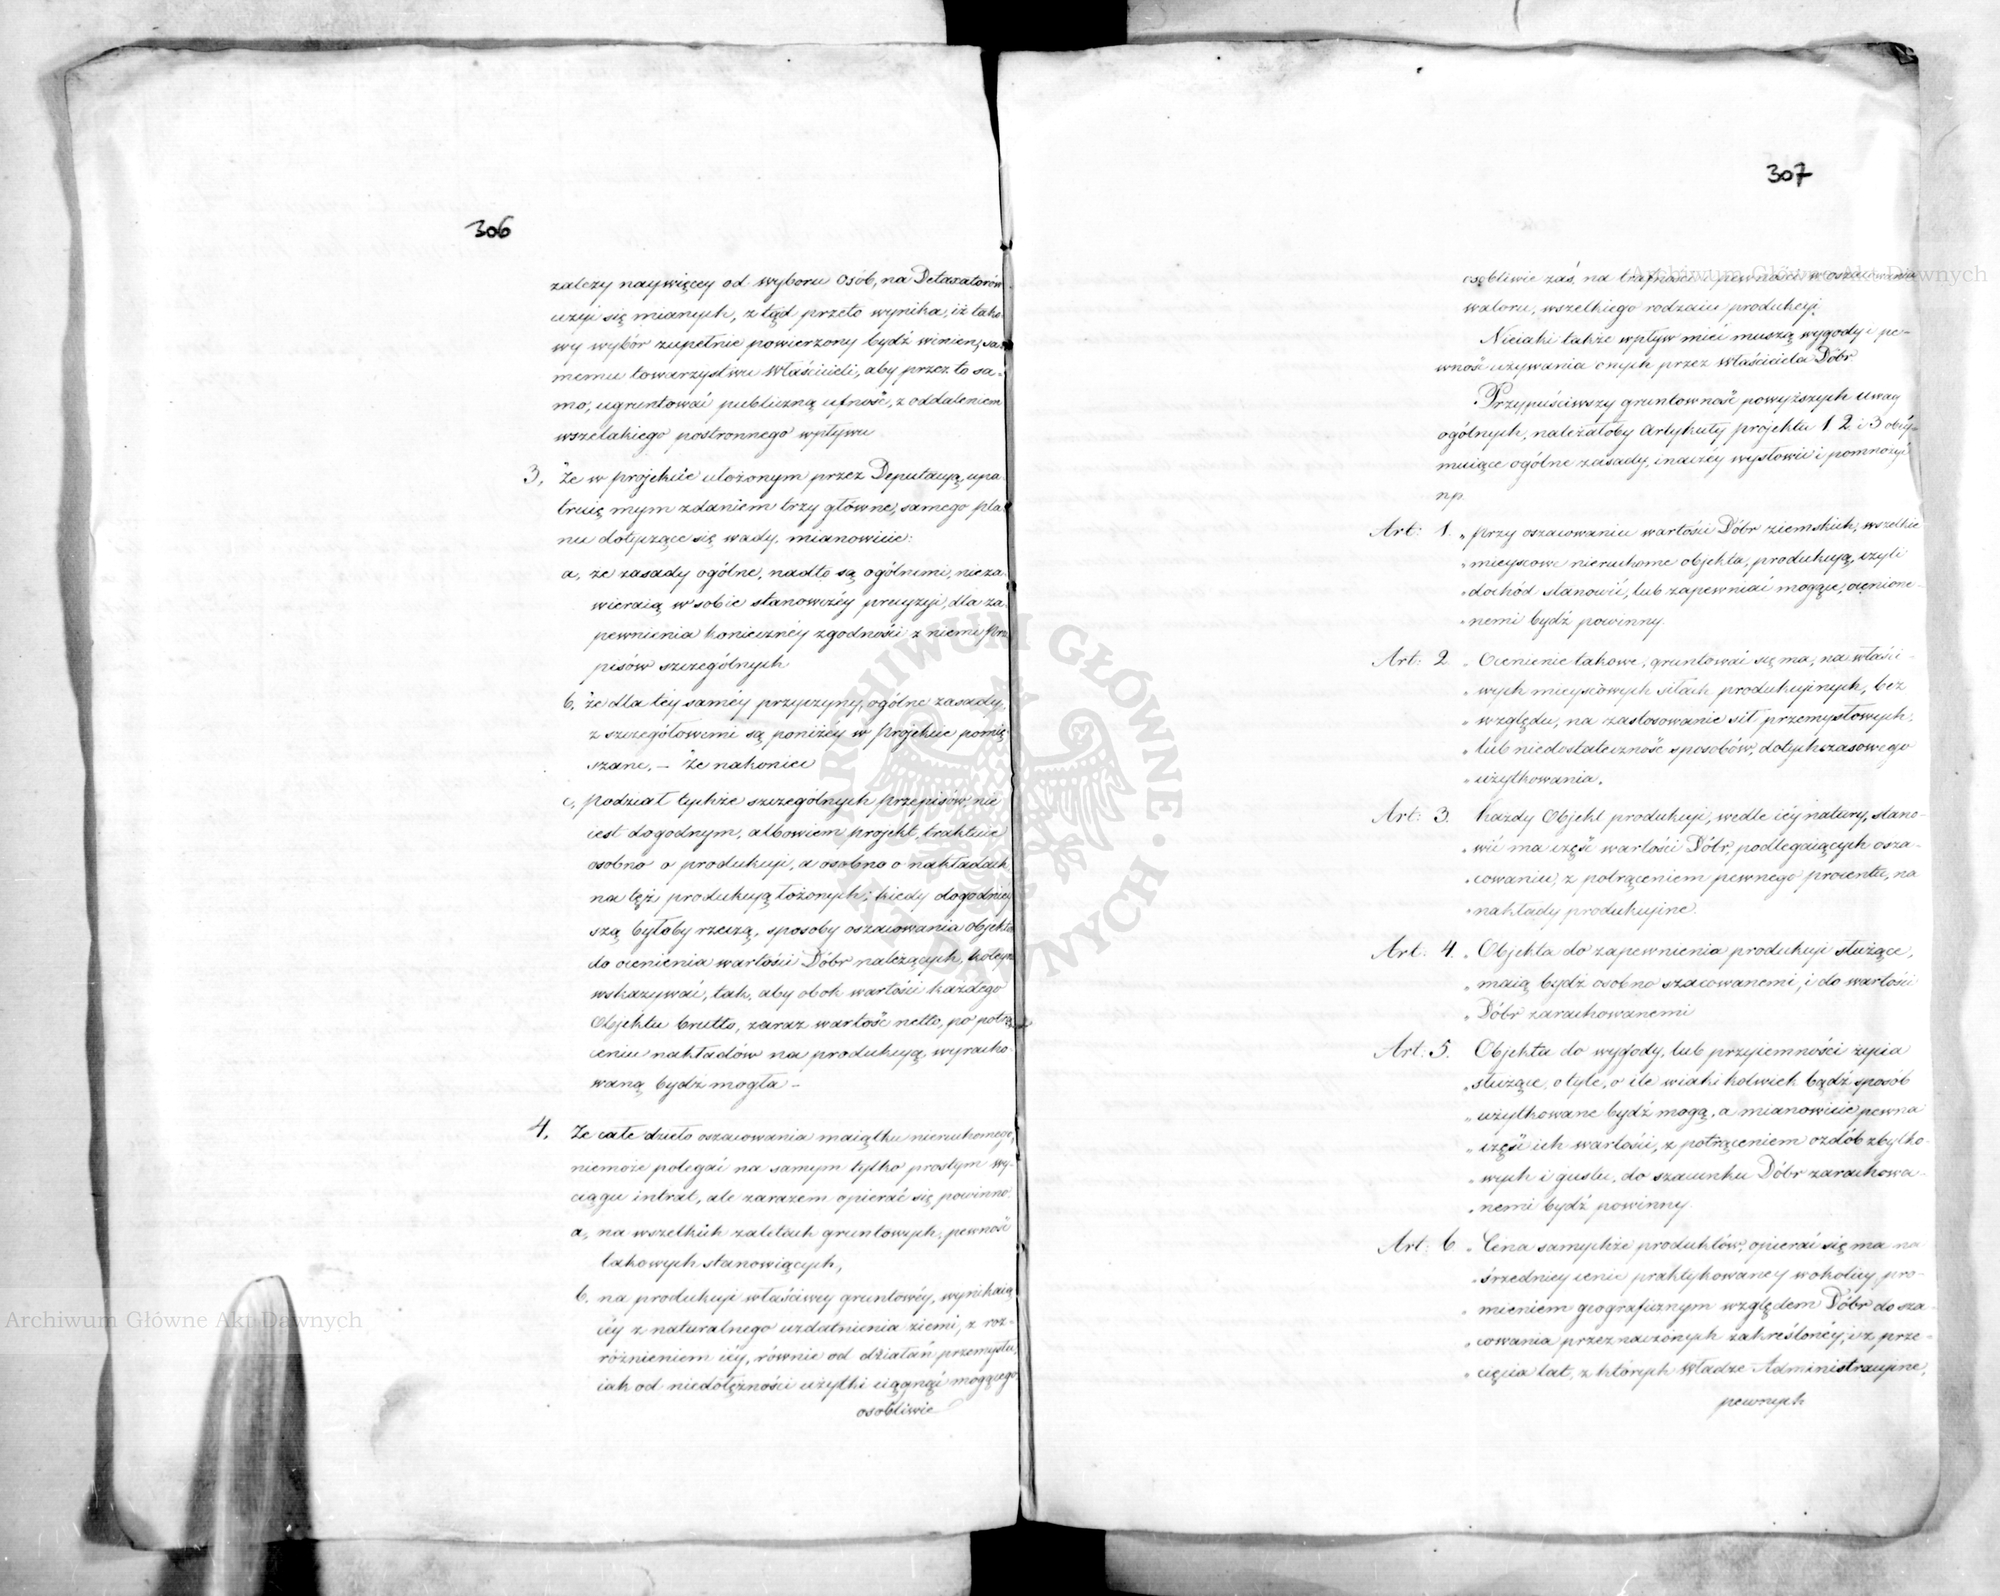 306
zależy naywięcey od wyboru Osób, na Detaxatorów
użyi się mianych, z tąd przeto wynika, iż tako
wy wybór zupełnie powierzony bydź winien, sa-
memu towarzystwu Właścicieli, aby przez to sa-
mo, ugruntować publiczną ufność, z oddaleniem
wszelakiego postronnego wpływu
3, Że w projekcie ułożonym przez Deputacyą, upa-
truię mym zdaniem trzy główne, samego pla-
nu dotyczące się wady, mianowicie:
a, że zasady ogólne, nadto są ogólnemi, nieza-
wieraią w sobie stanowczéy precyzyi, dla za-
pewnienia koniecznéy zgodności z niemi prze
pisów szczególnych
b, że dla téy saméy przyczyny, ogólne zasady,
z szczegółowemi są poniżéy w projekcie pomię-
szane, – Że nakoniec
c, podział tychże szczególnych przepisów, nie
iest dogodnym, albowiem projekt, traktuie
osobno o produkcyi, a osobno o nakładach
na tęż produkcyą łożonych; kiedy dogodniey
szą byłoby rzeczą, sposoby oszacowania objektu
do ocenienia wartości Dóbr należących, koleyno
wskazywać, tak, aby obok wartości każdego
Objektu brutto, zaraz wartość netto, po potrą
ceniu nakładów na produkcyą, wyracho-
waną bydź mogła –
4, Że całe dzieło oszacowania maiątku nieruchomego,
niemoże polegać na samym tylko prostym wy-
ciągu intrat, ale zarazem opierać się powinno
a, na wszelkich zaletach gruntowych, pewność
takowych stanowiących,
b, na produkcyi właściwey gruntowéy, wynikaią
céy z naturalnego uzdatnienia ziemi, z roz-
różnieniem iéy, równie od działań przemysłu,
iak od niedołężności użytki ciągnąć mogącego
osobliwie
307
osobliwie zaś, na trafności i pewności w oszacowaniu
waloru, wszelkiego rodzaiu produkcyi.
Nieiaki także wpływ mieć muszą wygody i pe-
wność używania onych przez Właściciela Dóbr
Przypuściwszy gruntowność powyższych uwag
ogólnych, należałoby Artykuły projektu 1. 2. i 3 obéy-
muiące ogólne zasady, inaczéy wysłowić i pomnożyć
np.
Art: 1. „ przy oszacowaniu wartości Dóbr ziemskich, wszelkie
„ mieyscowe nieruchome objekta, produkcyą, czyli
„ dochód stanowić, lub zapewniać mogące, ocenione-
„ nemi bydź powinny.
Art: 2. „ Ocenienie takowe, gruntować się ma, na właści-
„ wych mieyscowych siłach produkcyinych, bez
„ względu, na zastosowanie sił przemysłowych,
„ lub niedostateczność sposobów, dotychczasowego
„ użytkowania.
Art: 3. Każdy Objekt produkcyi, wedle iéy natury, stano-
„ wić ma część wartości Dóbr, podlegaiących osza-
„ cowaniu, z potrąceniem pewnego procentu, na
„ nakłady produkcyine.
Art: 4. „ Objekta do zapewnienia produkcyi służące,
„ maią bydź osobno szacowanemi, i do wartości
„ Dóbr zarachowanemi
Art: 5. Objekta do wygody, lub przyiemności życia
„ służące, o tyle, o ile w iaki kolwiek bądź sposób
„ użytkowane bydź mogą, a mianowicie pewna
„ część ich wartości, z potrąceniem ozdób zbytko-
„ wych i gustu, do szacunku Dóbr zarachowa-
„ nemi bydź powinny.
Art: 6. „ Cena samychże produktów, opierać się ma na
„ średniey cenie praktykowaney w okolicy, pro-
„ mieniem geograficznym względem Dóbr do sza-
„ cowania przeznaczonych zakreślonéy, i z prze-
„ cięcia lat, z których Władze Administracyine,
pewnych
Archiwum Główne Akt Dawnych
Archiwum Główne Akt Dawnych
ARCHIWUM GŁÓWNE AKT DAWNYCH